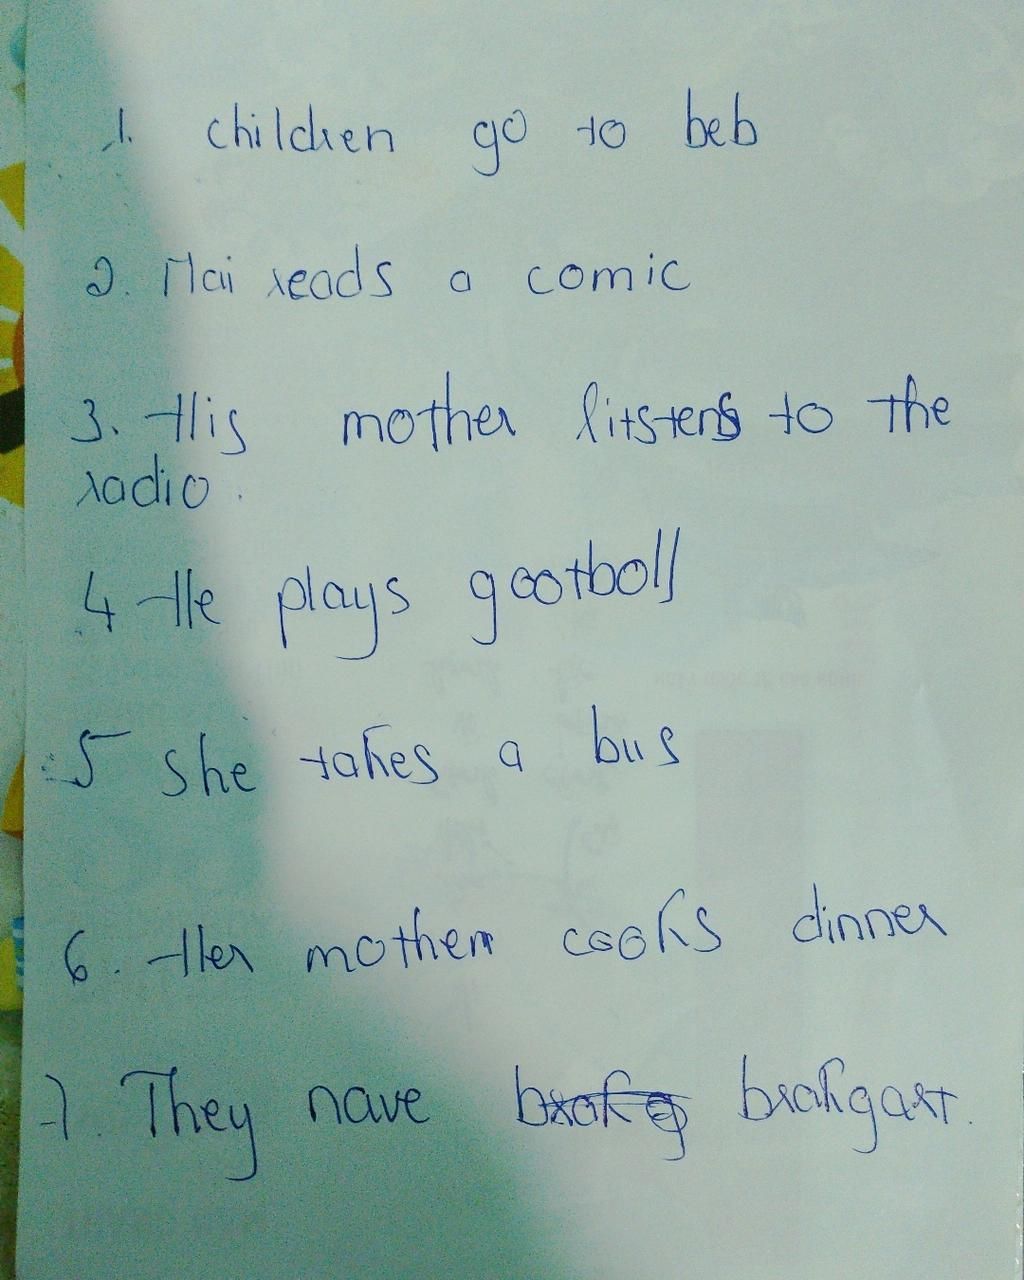 1. children go to beb
2. Mai reads a comic
3. His mother litstens to the
radio.
4 He plays gootball
5 She takes a bus
6. Her mother cooks dinner
7. They nave brakgast.